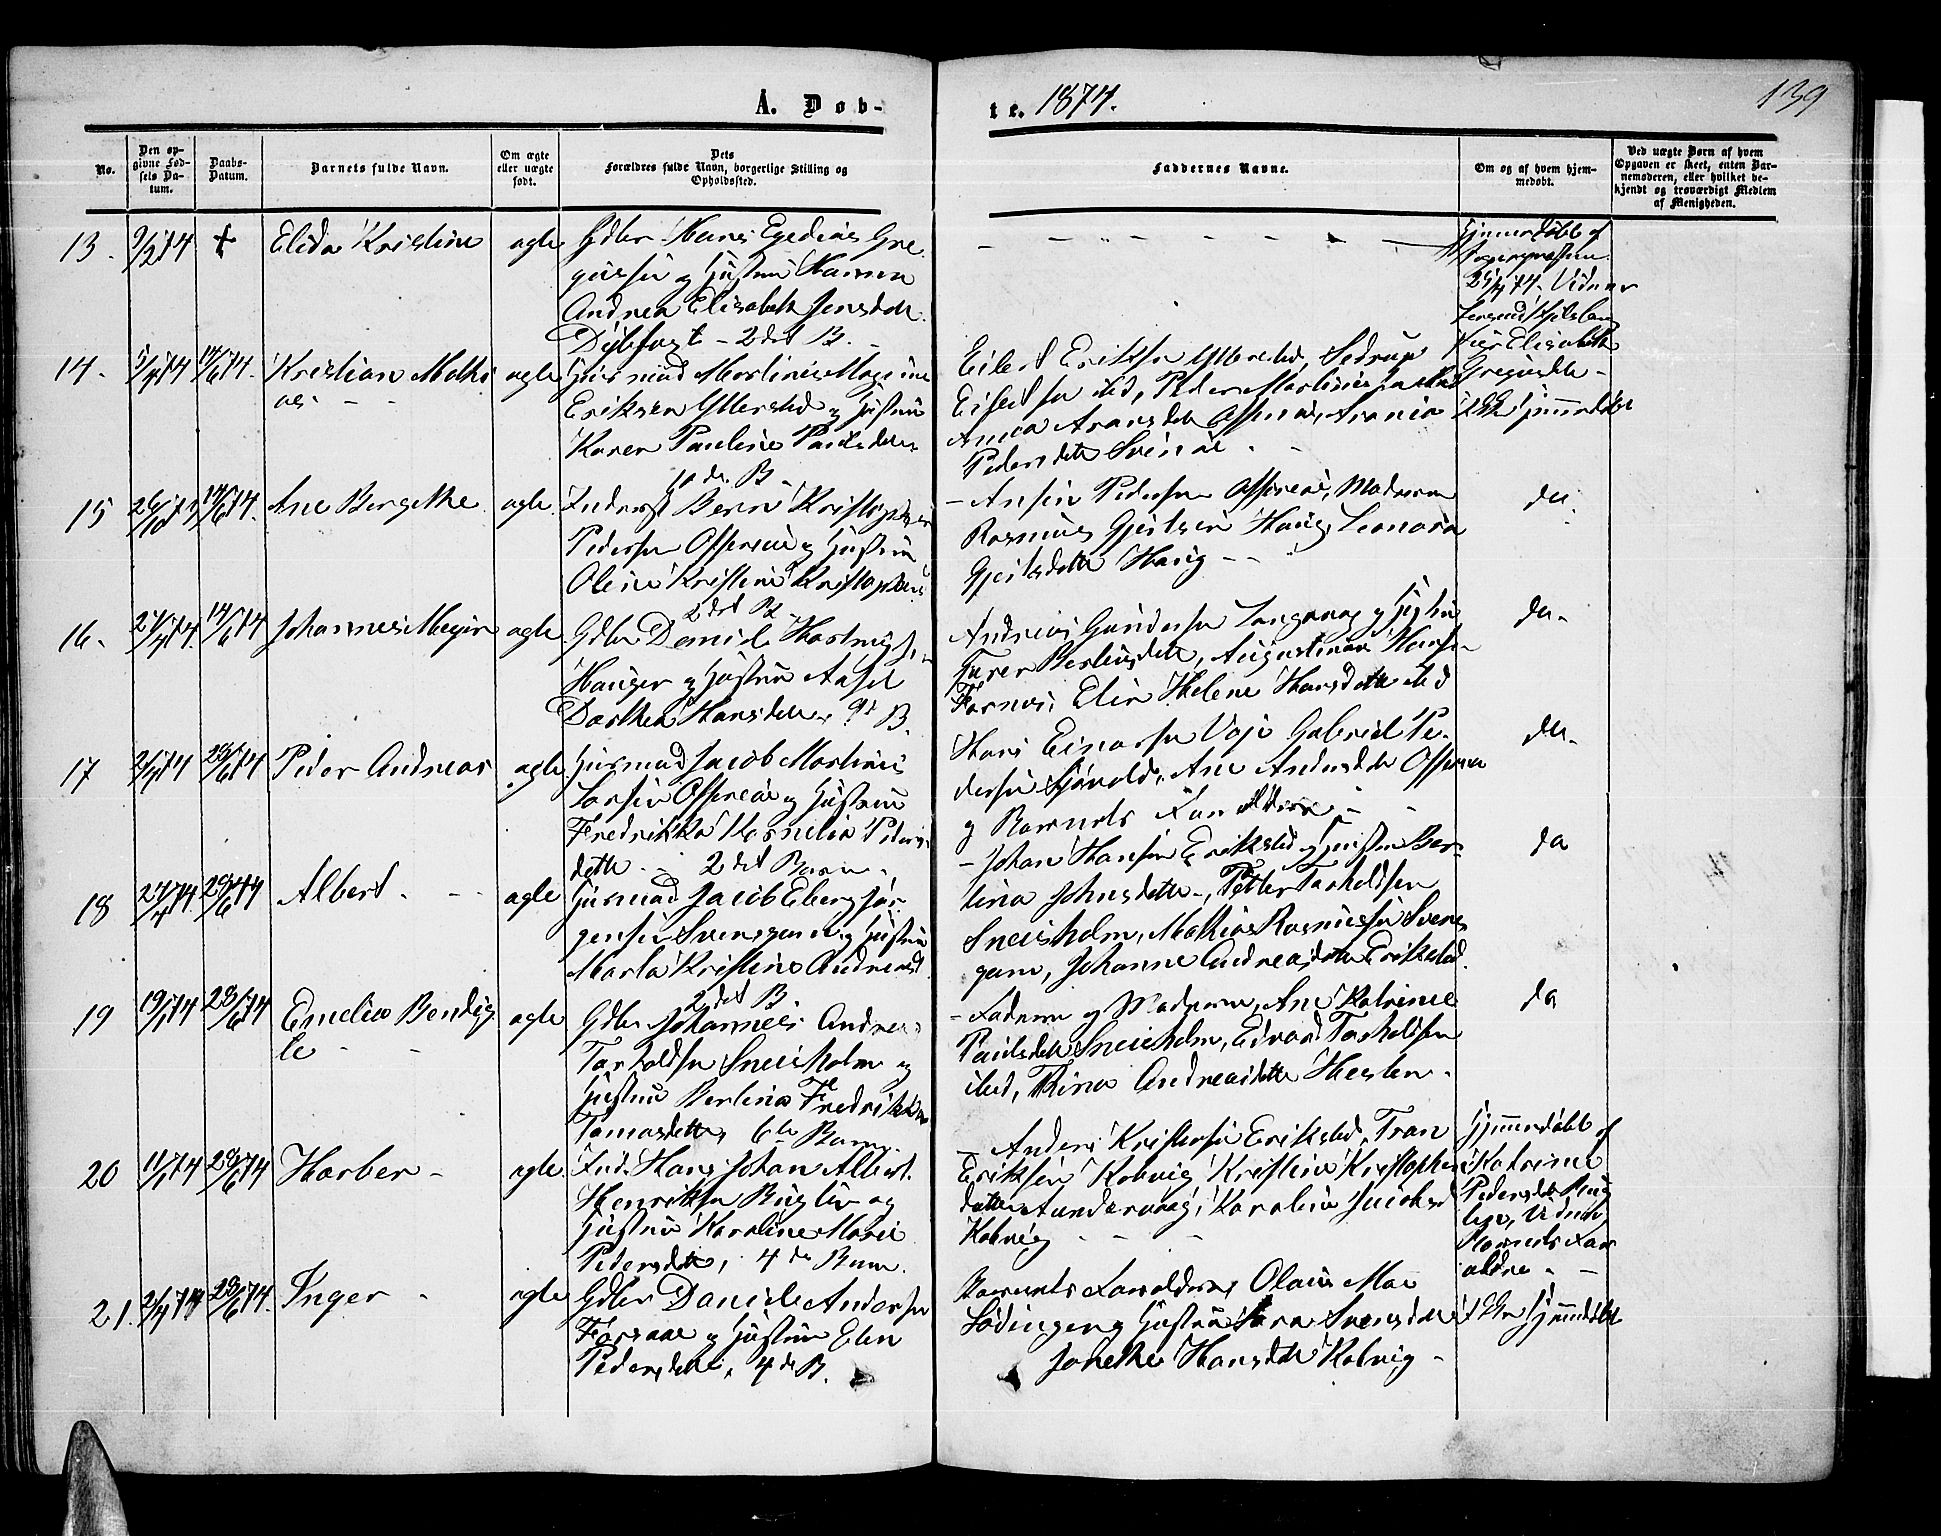 139
Å. Døb-
te. 1874.
No.
Den op-
givne Fød-
sels Da-
tum.
Daabs-
Datum.
Barnets fulde Navn.
Om ægte
eller uægte
født.
Dets
Forældres fulde Navn, borgerlige Stilling og
Opholdssted.
Faddernes Navne.
Om og af hvem hjem-
medøbt.
Ved uægte Børn af hvem
Opgaven er skeet, enten Bar-
nemoderen, eller hvilket be-
kjendt og troværdigt Medlem
af Menigheden.
13. 9/2 74 † Elida Kristine ægte
Gdbr Hans Egedius Gre-
gussen og Hustru Hanna
Andrea Elisabeth Jensdatt.
Dybfest - 2det B.
Hjemmedøbt af
Vidner
Elisabeth
Gregusdtr -
14. 14/6 74. Kristian Mathi
as - - ægte
Husmand Martinus Magnus
Eriksen Ytterstad og Hustru
Karen Pauline Paulsdtr
1ste B.
Eilert Eriksen Ytterstad,
Eilertsen ibd, Peder Martinius
Anna Aronsdtr Offersø,
Pedersdtr Svinø
Ikke hjemmedøbt
15 14/6 74. Ane Bergithe ægte.
Inderst Bern Kristopher
Pedersen Offersø og Hustru
Oline Kristine Kristophers
2det B
- Ansin Pedersen Offersø, Madmora
Rasmus Gjertsen Haug, Leonora
Gjertsdtr Haug - -
do.
16. 27/4 74. 14/6 74 Johannes Meyer ægte
Gdbr Daniel Hartvigsen
Hauger og Hustru
Dorthea Hansdtr, 9de B.
Andreas Gundersen
Berteusdtr, Augustinus Hans
Elen Helene Hansdtr ibd
do.
17 2/4 74 28/6 74 Peder Andreas ægte
Husmand Jacob Martinus
Larsen Offersø og Hustru
Fredrikka Kornelia Peders
datter - 2det Barn.
Hans Einarsen Voje Gabriel Pe-
dersen Sjåvold, Ane Andersdtr Offersø
og Barnets Forældre -
do.
18 27/4 74. 28/6 74 Albert. - - ægte
Husmand Jacob Eberg Jør-
gensen Svensgam og Hustru
Marta Kristine Andreasd.
2det B
- Johan Hansen Erikstad og Hustru Ber-
tina Johnsdatter, Petter Tarholdsen
Sneisholm, Mathias Rasmussen Svens
gam, Johanne Andreasdatter Erikstad.
do
19 19/1 74 28/6 74 Emelie Bendig
te - - ægte
Gdbr Johannes Andreas
Tarholdsen Sneisholm og
Hustru Berlina Fredrikka
Tomasdatter, 6te Barn
- Faderen og Moderen, Ane Katrine
Paulsdtr Sneisholm, Edvard Tarholdsen
ibid, Trina Andreasdatter Hesten.
do
20 11/1 74 28/6 74 Harber - ægte.
Ind. Hans Johan Albert
Henriksen Buglie og
Hustru Karoline Marie
Pedersdtr, 4de Barn.
- Anders Kristensen Erikstad, Tran
Eriksen Kobvig, Kristine Kristophers
datter Sundervaag, Karoline Jacobsd
Kobvig - - -
Hjemmedøbt af
Katrine
Pedersdtr Bug
lie, Vidner
Barnets For
ældre - -
21. 2/4 74 28/6 74. Inger - ægte
Gdbr Daniel Andersen
Forsaae og Hustru Elen
Pedersdtr, 4de B.
Barnets Forældre, Olaus Moe
Lødingen og Hustru Sara Svensdtr
Jonetha Hansdtr Kobvig -
Ikke hjemmedøbt